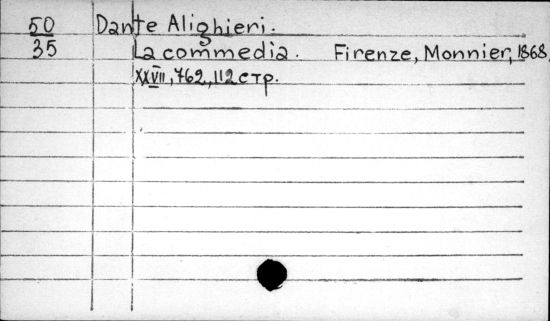 50 Dante Alighieri.
35 La commedia. Firenze, Monnier, 1868,
XXVII, 762, 112 стр.